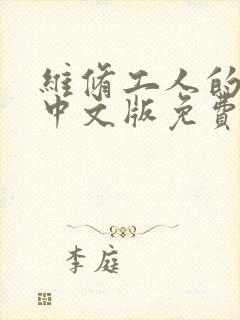 維修工人的
中文版免費
李庭